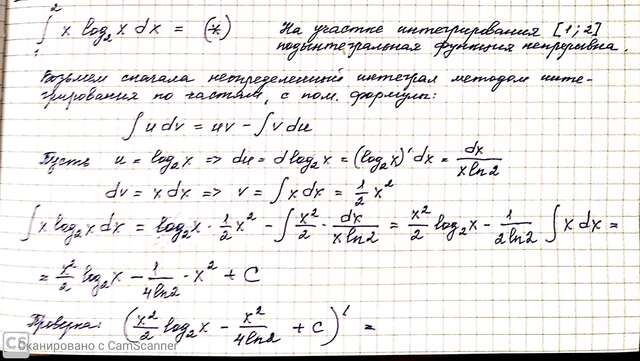 ∫₁² x log₂x dx = (*) На участке интегрирования [1; 2]
подынтегральная функция непрерывна.
Возьмем сначала неопределенный интеграл методом инте-
грирования по частям, с пом. формулы:
∫ u dv = uv - ∫ v du
Пусть u = log₂x => du = d log₂x = (log₂x)' dx = dx/(x ln2)
dv = x dx => v = ∫ x dx = 1/2 x²
∫ x log₂x dx = log₂x · 1/2 x² - ∫ x²/2 · dx/(x ln2) = x²/2 log₂x - 1/(2 ln2) ∫ x dx =
= x²/2 log₂x - 1/(4 ln2) · x² + C
Проверка: (x²/2 log₂x - x²/(4 ln2) + C)' =
CS Сканировано с CamScanner